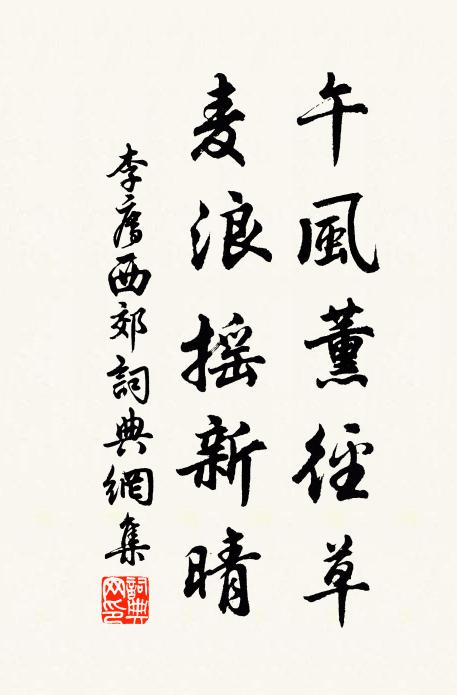 午風薰徑草
麦浪摇新晴
李廌西郊詞典網集
詞典网印